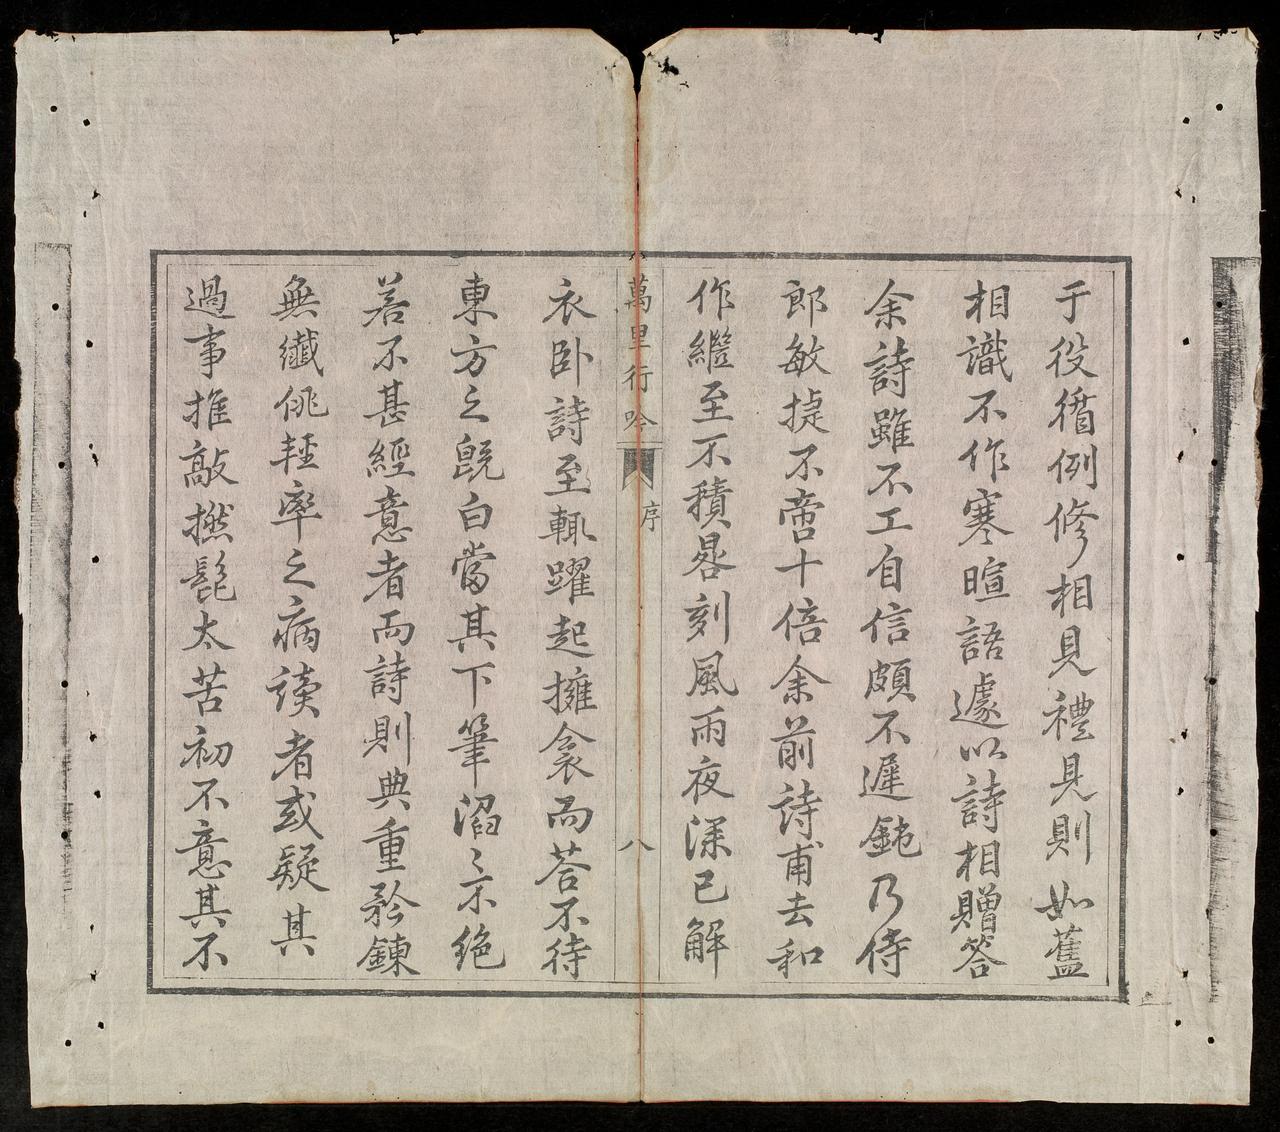 于役循例修相見禮見則如舊
相識不作寒暄語遽以詩相贈答
余詩雖不工自信頗不遲鈍乃侍
郎敏捷不啻十倍余前詩甫去和
作繼至不積晷刻風雨夜深已解
萬里行吟
序
八
衣卧詩至輒躍起擁衾而荅不待
東方之旣白當其下筆滔〻亦絶
若不甚經意者而詩則典重矜鍊
無纖佻輕率之病讀者或疑其
過事推敲撚髭太苦初不意其不